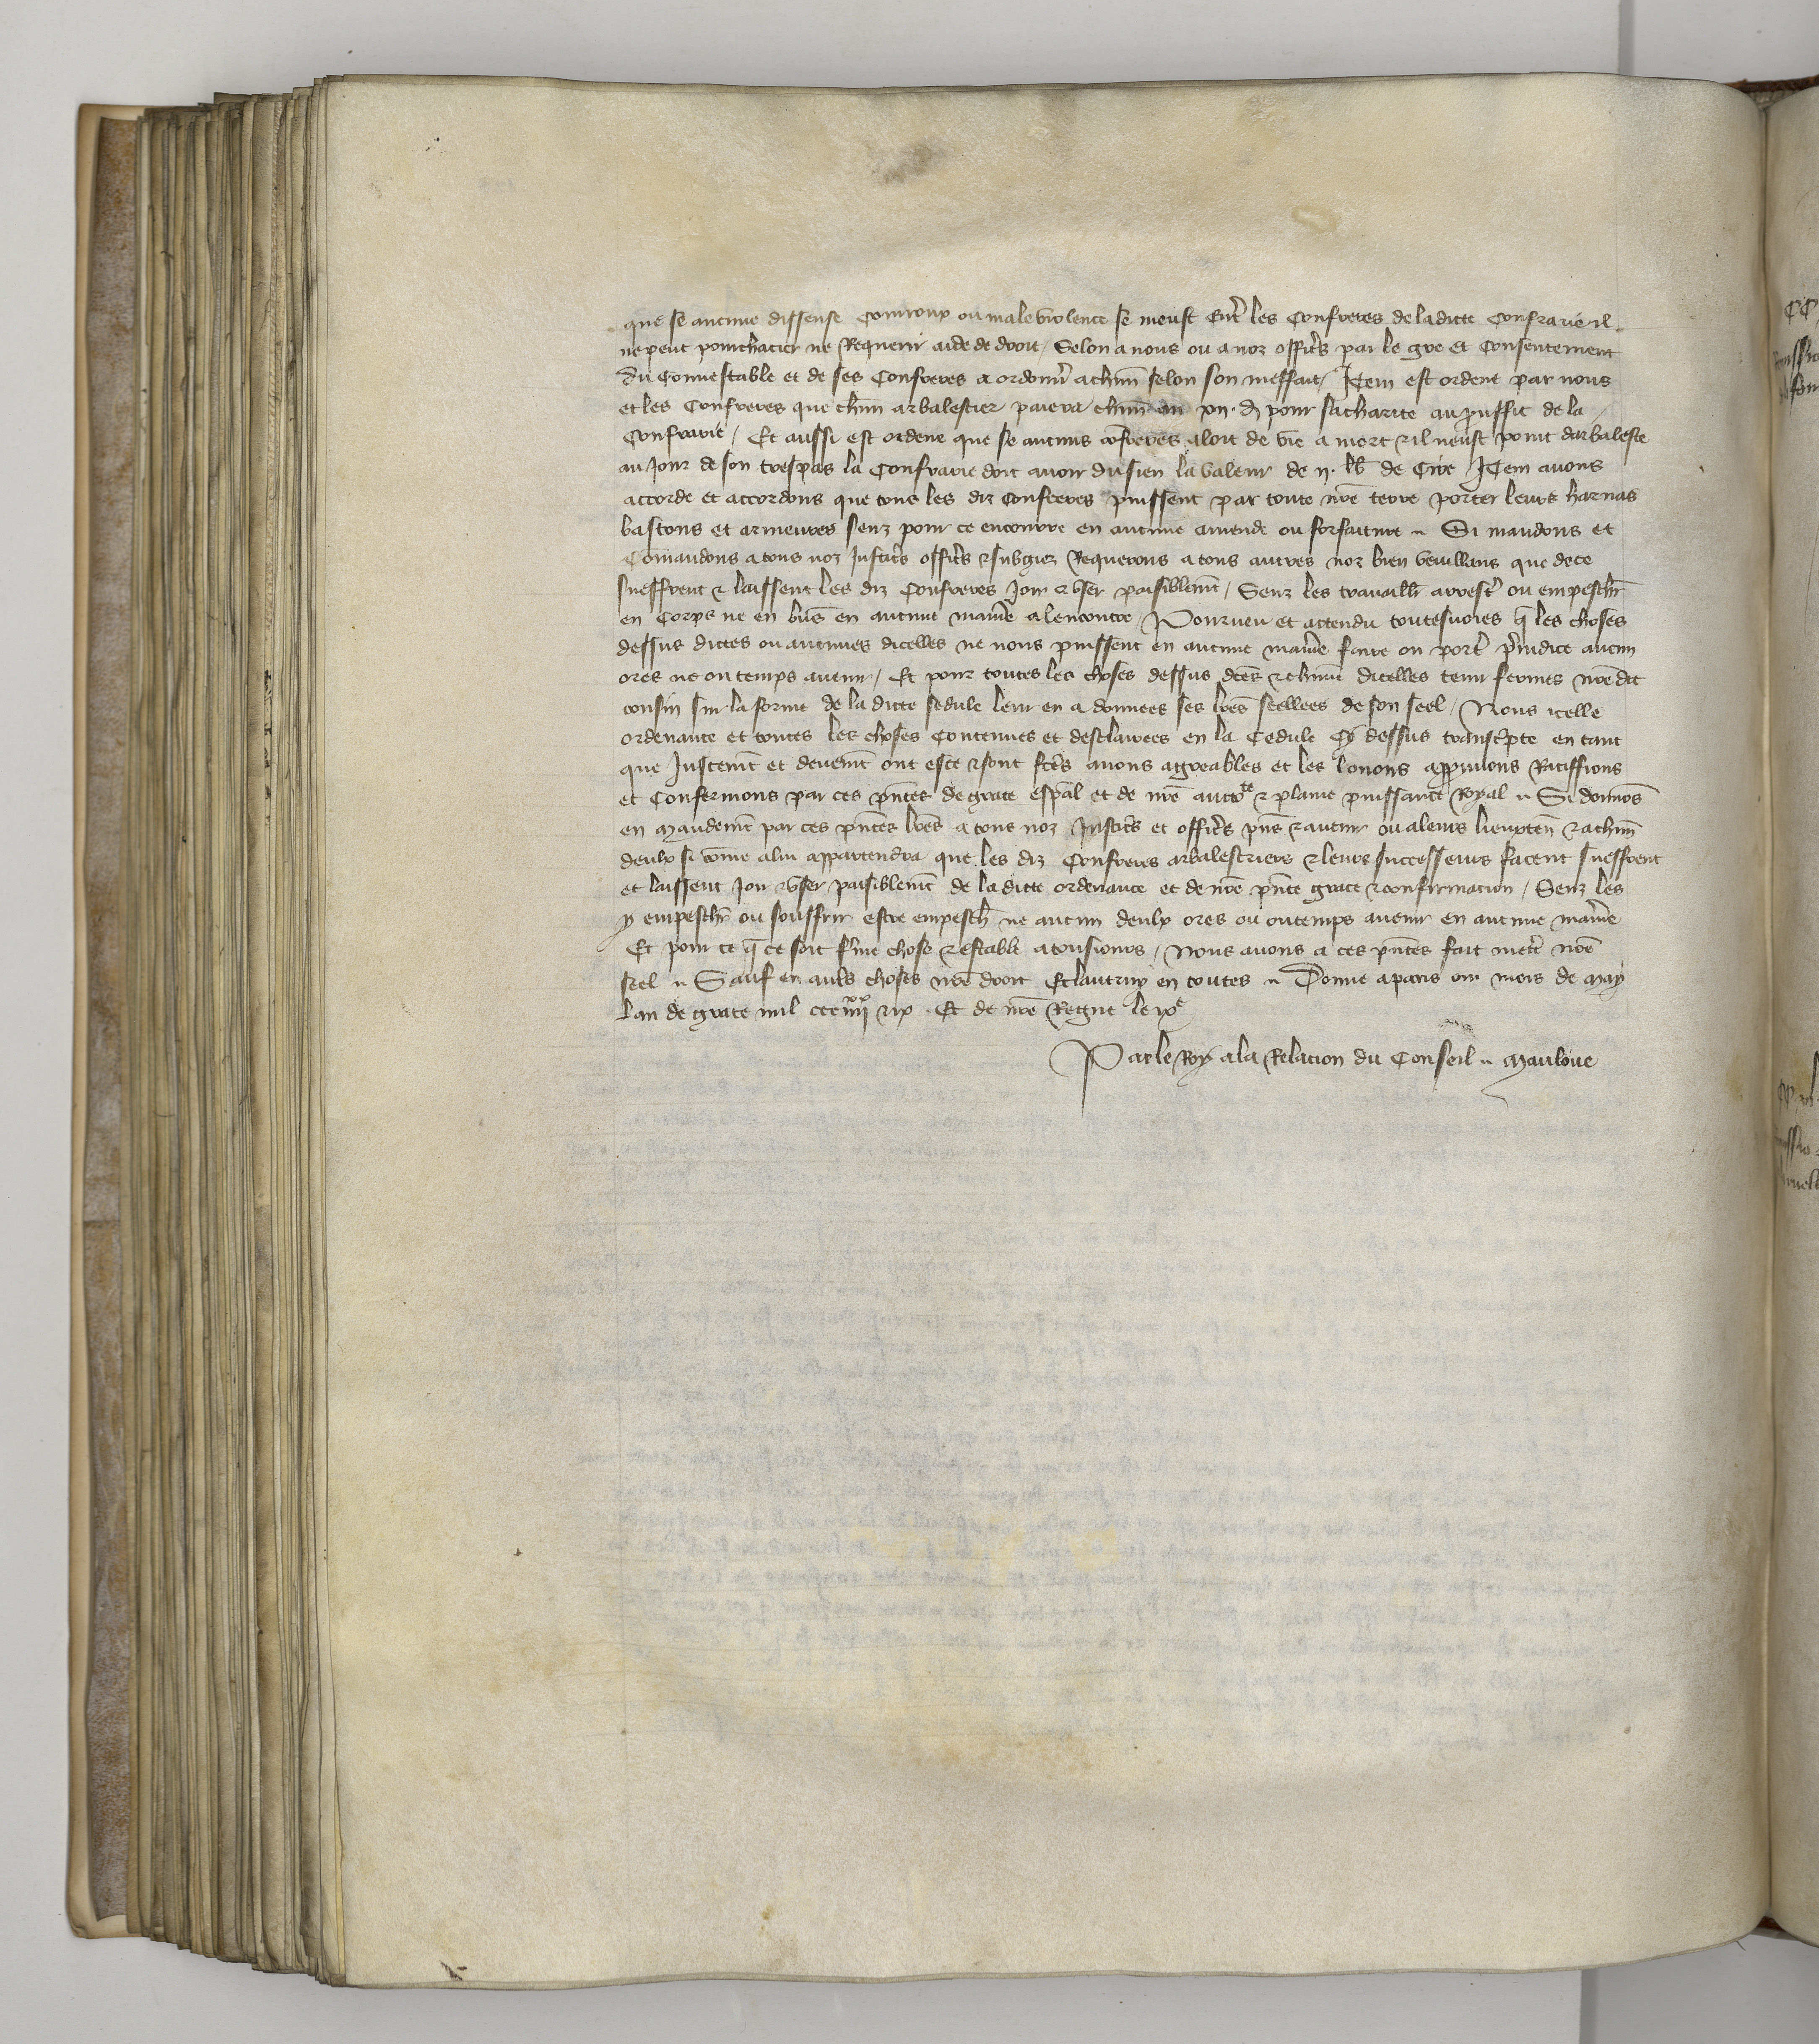 que se aucune dissense courroux ou malevolence se meust entr̄ les Confreres de la dicte Confrarie il
ne peut pourchacier ne Requerir aide de droit / Selon a nous ou a noz offic̄rs par le gre et Consentement
du Connestable et de ses Confreres a ordonn̄r a chūn selon son meffait / Item est ordene par nous
et les Confreres que ch̄un arbalestier paiera chūn an xii. d pour sa charite au prouffit de la
Confrarie / Et aussi est ordene que se aucuns cōfreres aloit de vie a mort & il neust point darbaleste
au Jour de son trespas la Confrarie doit avoir du sien la valeur de ii. lb̄ de Cire Item avons
accorde et accordons que tous les diz Confreres puissent par toute nr̄e terre porter leurs harnas
bastons et armeures senz pour ce encourre en aucune amende ou forfaiture .. Si mandons et
Comandons a tous noz Justic̄rs offic̄rs & subgiez Requerons a tous autres noz bien veuillans que de ce
sueffrent & laissent les diz Confreres Joir & user paisiblem̄t / Senz les travaill̄r arrest̄r ou empesch̄r
en Corps ne en biēs en aucune manīe a lencontre / Pourveu et attendu toutesvoies q̄ les choses
dessus dictes ou aucunes dicelles ne nous puissent en aucune manīe faire ou port̄r p̄riudice aucun
ores ne ou temps avenir / Et pour toutes les choses dessus dc̄es & chūne dicelles tenir fermes nr̄e dit
cousin sur la forme de la dicte sedule leur en a donnees ses lr̄es seellees de son seel / Nous icelle
ordenance et toutes les choses Contenues et desclairees en la Cedule Cy dessus transc̄pte en tant
que Justem̄t et deuem̄t ont este & sont fc̄es avons agreables et les louons approuvons Ratiffions
et Confermons par ces p̄ntes de grace esp̄al et de nr̄e aucto.te & plaine puissance Royal .. Si donnōs
en mandem̄t par ces p̄ntes lr̄es a tous noz Justic̄rs et offic̄rs p̄ns & avenir ou a leurs lieuxten̄ & a chūn
deulx si cōme a lui appartendra que les diz Confreres arbalestriers & leurs successeurs facent sueffrent
et laissent Joir & user paisiblem̄t de la dicte ordenance et de nr̄e p̄nte grace & confirmacion / Senz les
y empesch̄r ou souffrir estre empesch̄ ne aucun deulx ores ou ou temps avenir en aucune manīe
Et pour ce q̄ ce soit fr̄me chose & estable a tousiours / Nous avons a ces p̄ntes fait mett̄r nr̄e
seel .. Sauf en aut̄s choses nr̄e droit Et lautruy en toutes .. Donne a paris ou mois de May
Lan de grace mil ccc iiiixx & ix . Et de nr̄e Regne le ixe
Par le Roy a la Relacion du Conseil .. Mauloue